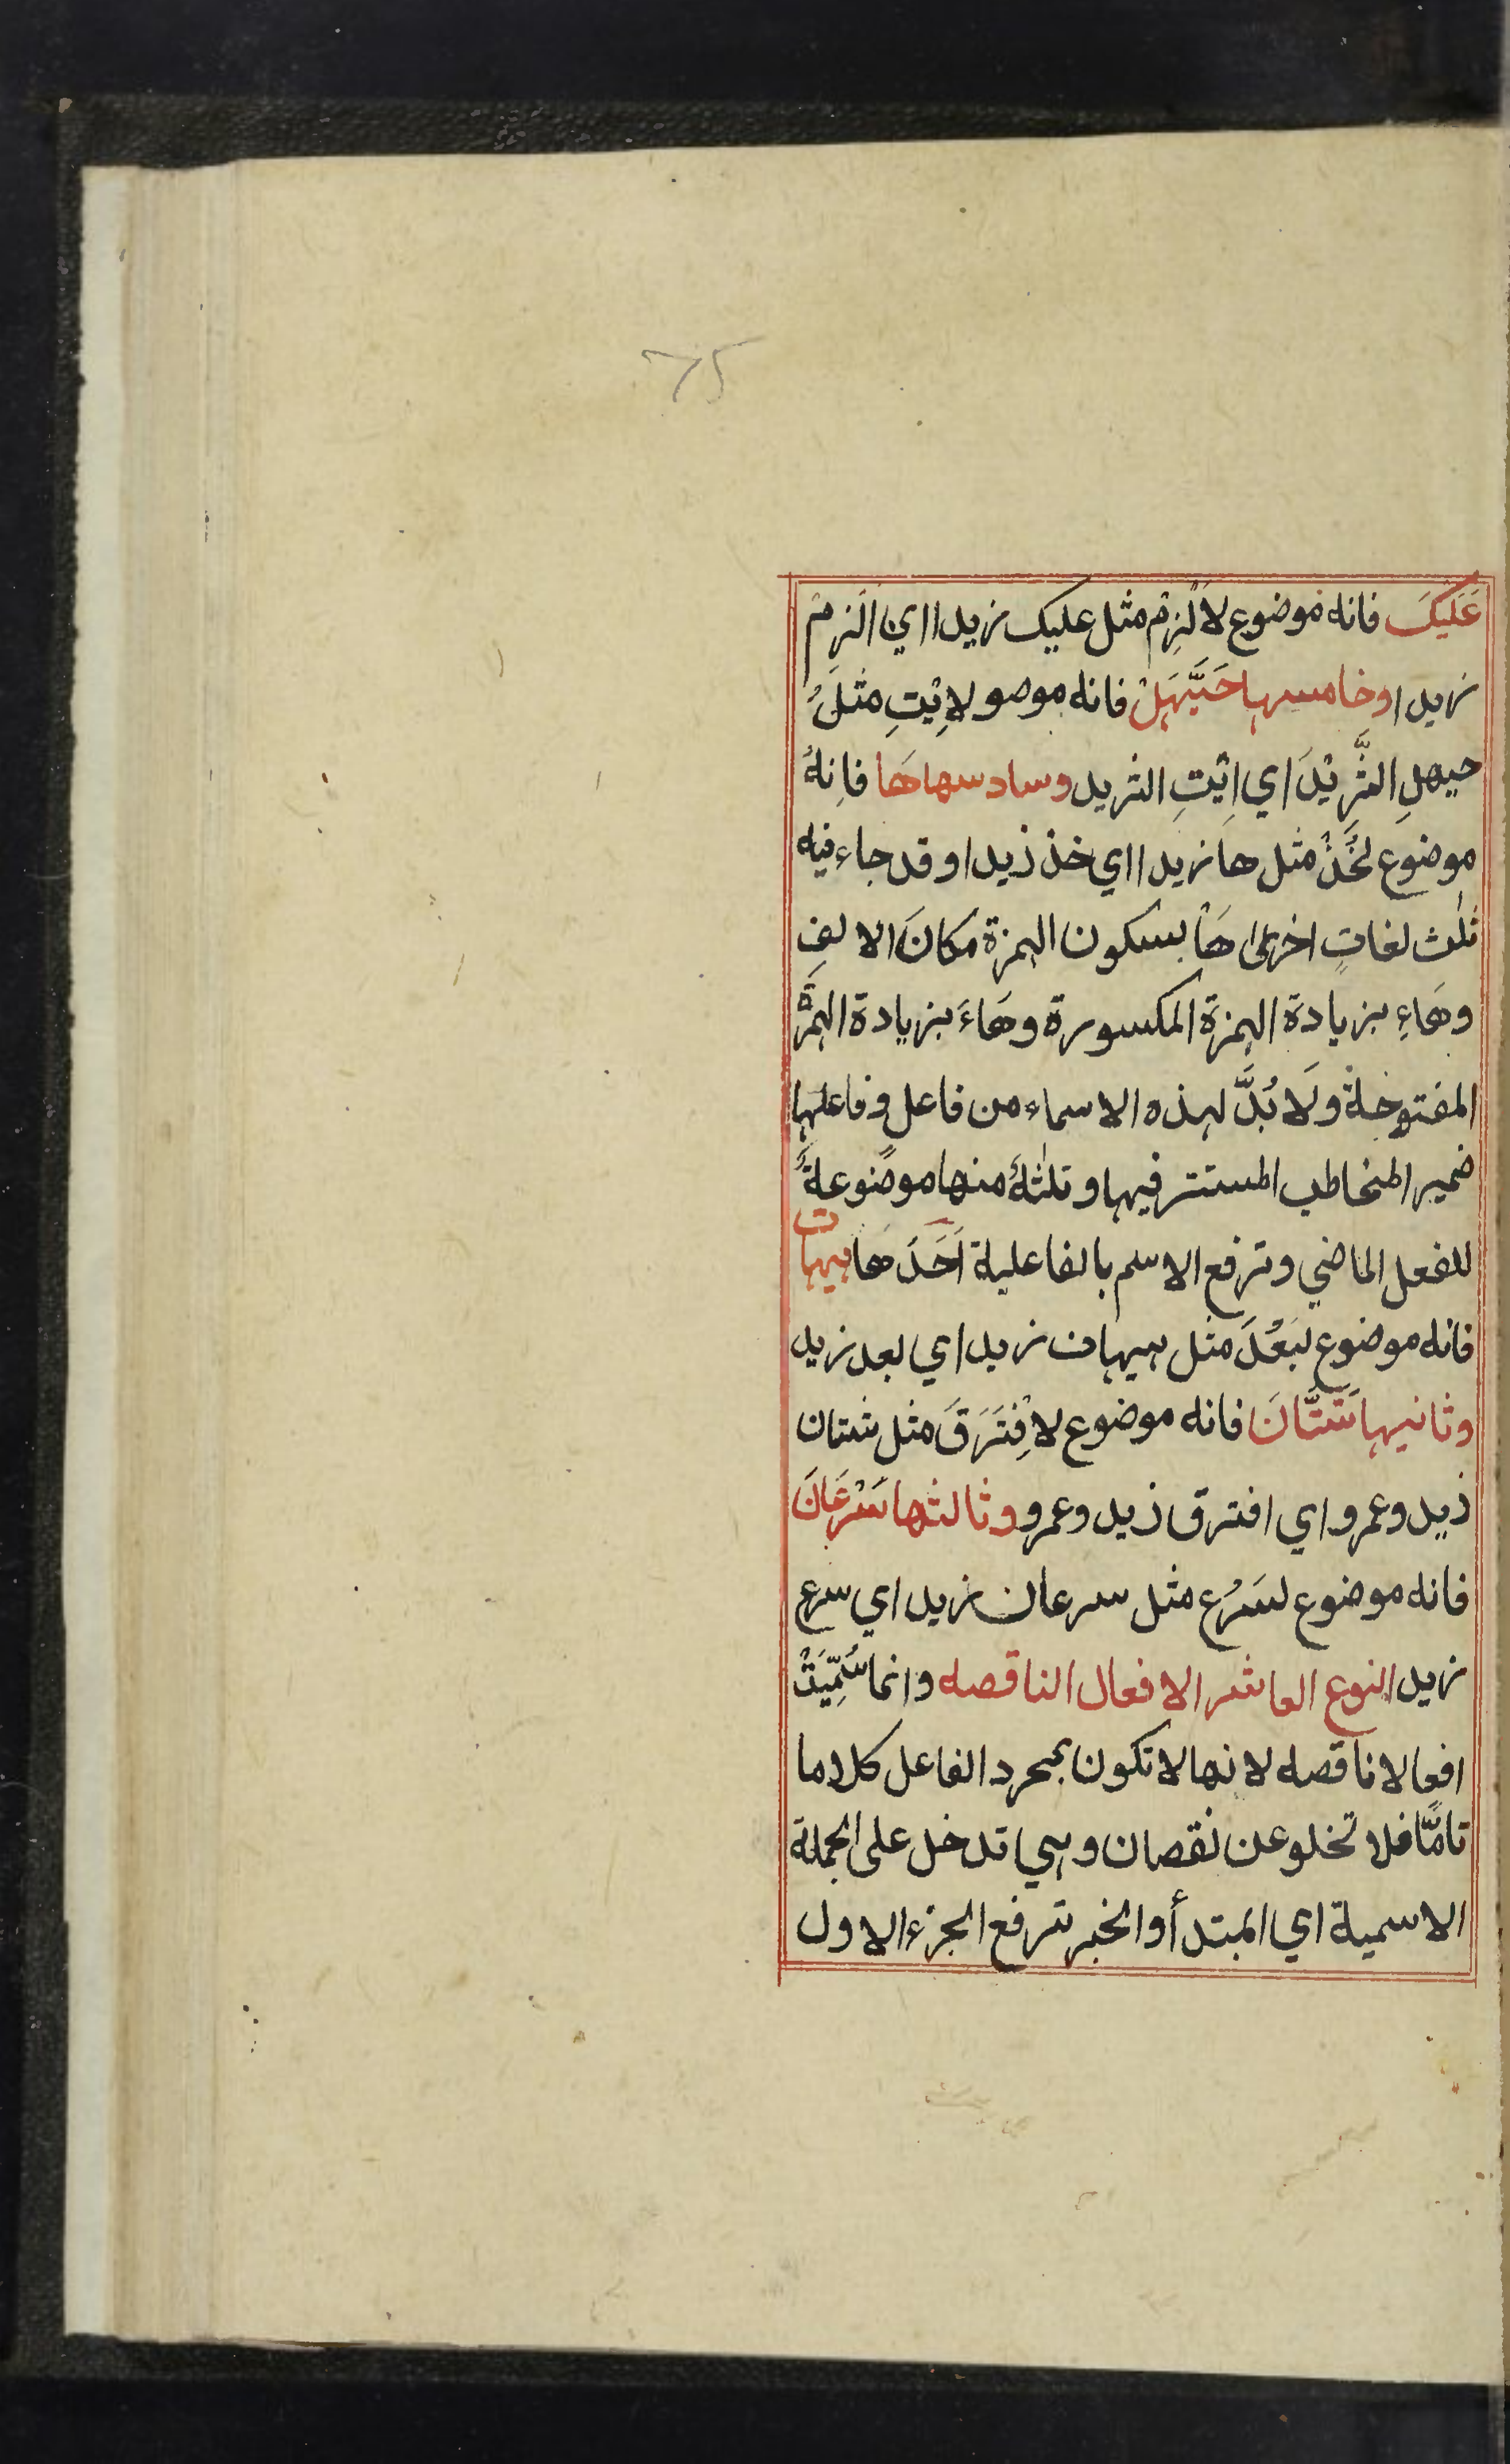 ٦٥
عَلَيكَ فانه موضوع لاَلْزِمْ مثل عليك زيدا اي اَلْزِمْ
زيدا وخامسها حَيَّهَلْ فانه موصو لاِيْتِ مثلَُ
حيهلِ الثَّرِيْدَ اي اِيْتِ الثريد وسادسها هَا فاِنهُ
موضوع لخُذْ مثل ها زيدا اي خذ ذيدا وقد جاء فيه
ثلٰث لغاتٍ اخرىٰ هَاْ بسكون الهمزة مكانَ الالفِ
وهَاءِ بزيادة الهمزة المكسورة وهَاءَ بزيادة الهمزَة
المفتوحة ولَا بُدَّ لهذه الاسماء من فاعل وفاعلها
ضمير المخاطب المستتر فيها وثلٰثةٌ منها موضوعةٌ
للفعل الماضي وترفع الاسم بالفاعلية اَحَدَها هيهات
فانه موضوع لبَعُدَ مثل هيهات زيد اي بعد زيد
وثانيها شَتَّانَ فانه موضوع لاِفْتَرَقَ مثل شتان
ذيد وعمرو اي افترق ذيد وعمرو وثالثها سَرْعَانَ
فانه موضوع لسَرُع مثل سرعان زيد اي سرع
زيد النوع العاشر الافعال الناقصه وانما سُمِّيَتْ
افعالا ناقصه لانها لا تكون بمجرد الفاعل كلاما
تامًّا فلا تخلو عن نقصان وهي تدخل على الجملة
الاسمية اي المبتدأ والخبر ترفع الجزء الاول